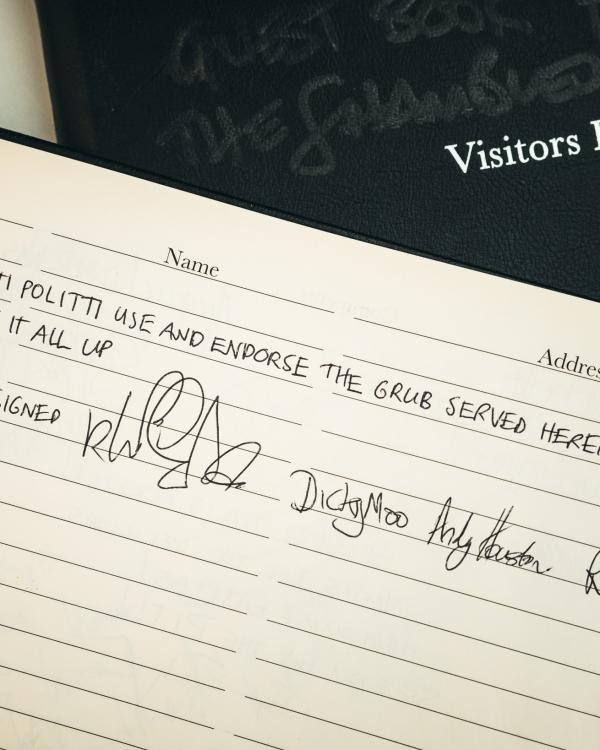 GUEST BOOK
THE SHAMBLES
Visitors
Name
Address
TI POLITTI USE AND ENDORSE THE GRUB SERVED HEREI
IT ALL UP
SIGNED DickyMoo Andy Houston